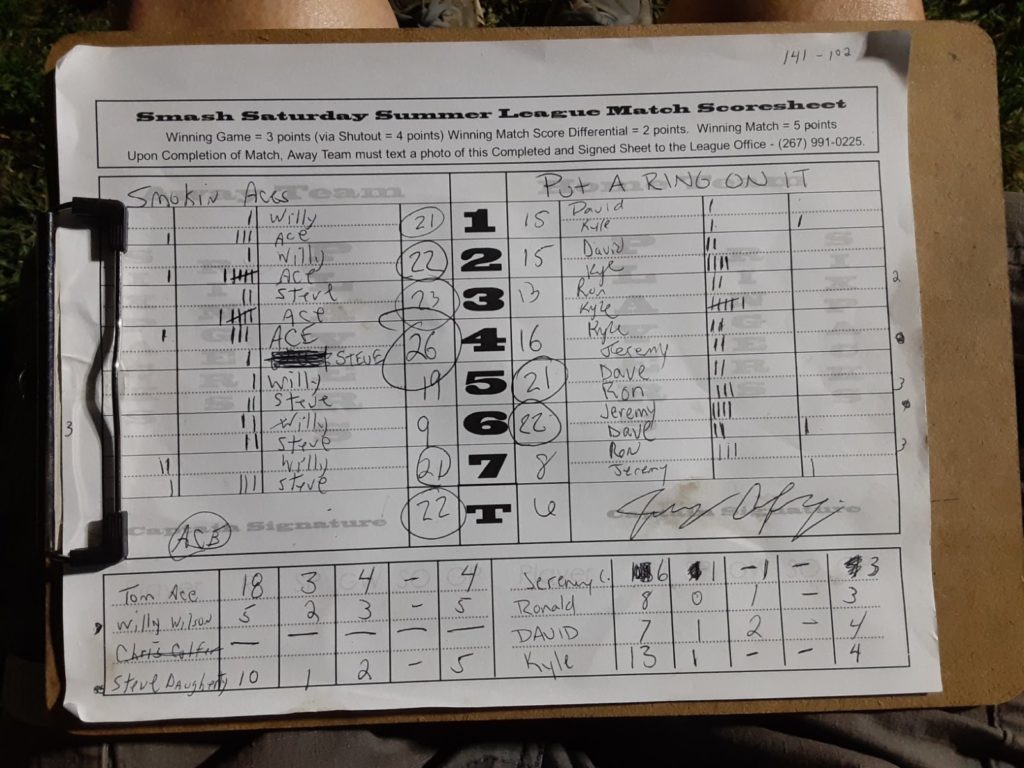 141 - 102
Smash Saturday Summer League Match Scoresheet
Winning Game = 3 points (via Shutout = 4 points) Winning Match Score Differential = 2 points. Winning Match = 5 points
Upon Completion of Match, Away Team must text a photo of this Completed and Signed Sheet to the League Office - (267) 991-0225.
Smokin Aces PUT A RING ON IT
Willy 21 1 15 David
Ace Kyle
Willy 22 2 15 David
ACE Kyle
Steve 23 3 13 Ron
ACE Kyle
2
ACE 26 4 16 Kyle
STEVE Jeremy
Willy 19 5 21 Dave
Steve Ron
3
Willy 9 6 22 Jeremy
Steve Dave
Willy 21 7 8 RON
Steve Jeremy
3
3
22 T 6
Captain Signature Captain Signature
ACE
Tom Ace 18 3 4 - 4 Jeremy C. 6 1 -1 - 3
Willy Wilson 5 2 3 - 5 Ronald 8 0 1 - 3
— — — — — DAVID 7 1 2 - 4
Steve Daugherty 10 1 2 - 5 Kyle 13 1 - - 4